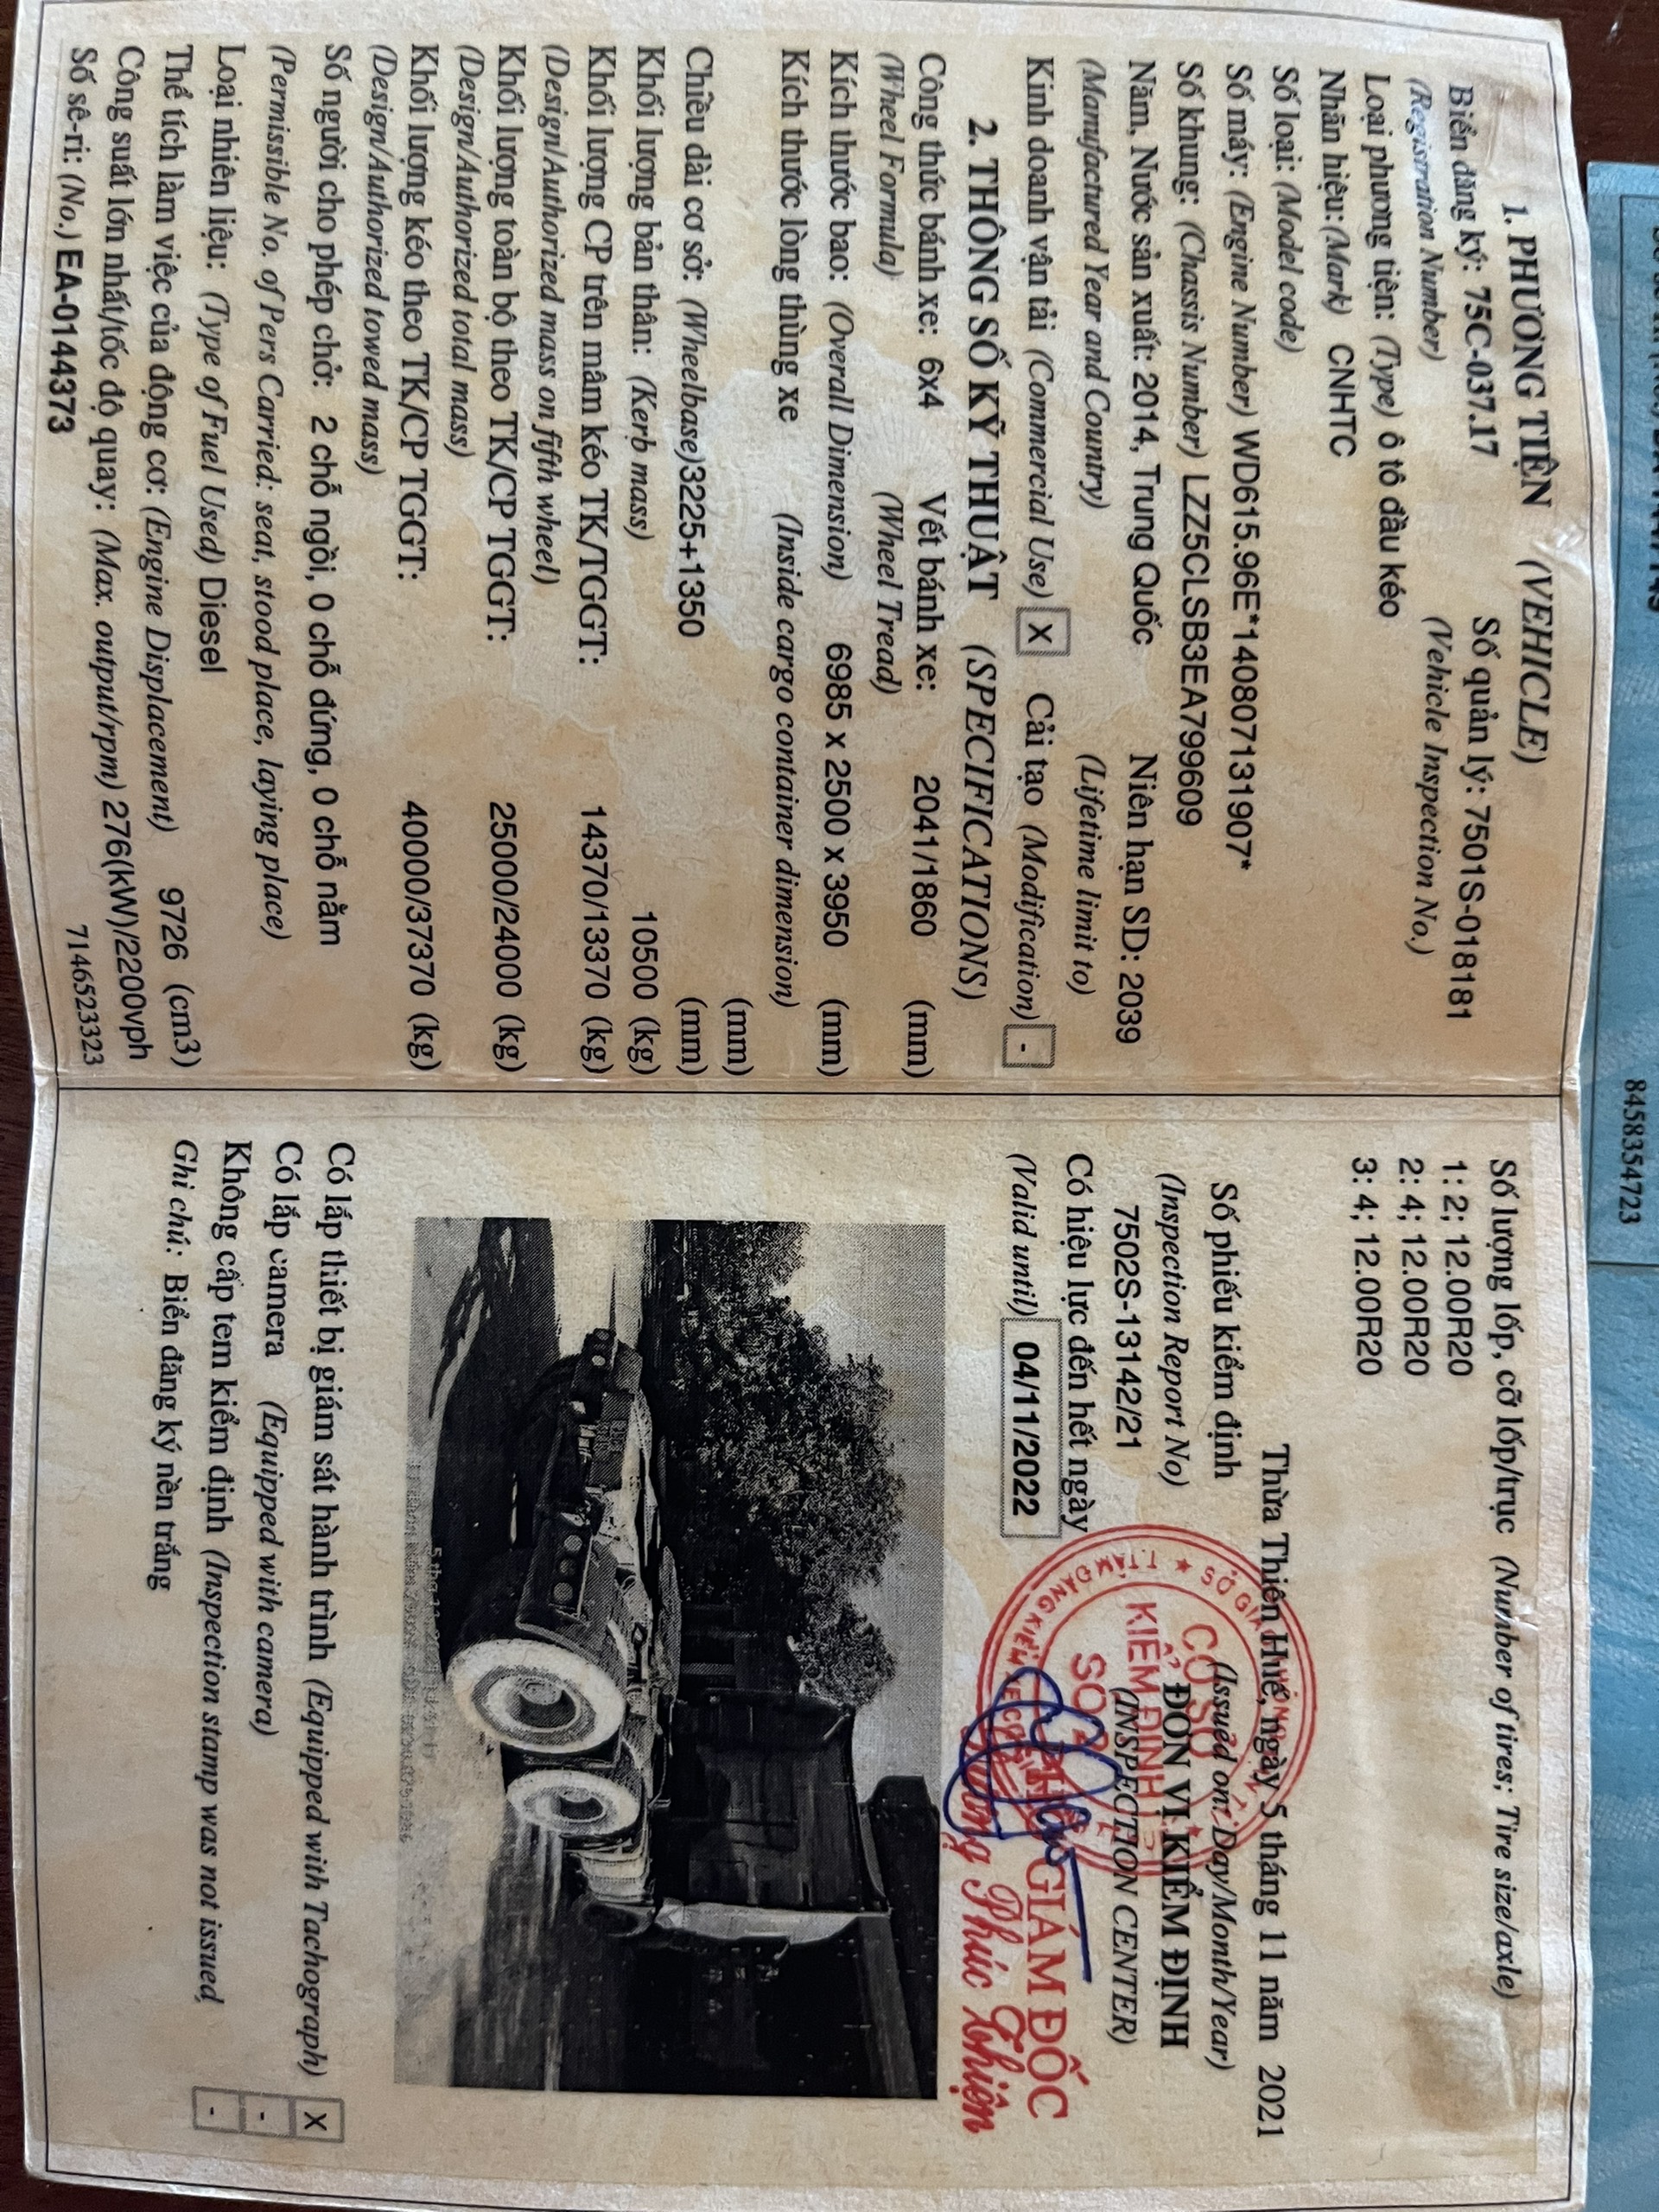 1. PHƯƠNG TIỆN (VEHICLE)
Biển đăng ký: 75C-037.17 Số quản lý: 7501S-018181
(Registration Number) (Vehicle Inspection No.)
Loại phương tiện: (Type) ô tô đầu kéo
Nhãn hiệu: (Mark) CNHTC
Số loại: (Model code)
Số máy: (Engine Number) WD615.96E*140807131907*
Số khung: (Chassis Number) LZZ5CLSB3EA799609
Năm, Nước sản xuất: 2014, Trung Quốc Niên hạn SD: 2039
(Manufactured Year and Country) (Lifetime limit to)
Kinh doanh vận tải (Commercial Use) X Cải tạo (Modification) -
2. THÔNG SỐ KỸ THUẬT (SPECIFICATIONS)
Công thức bánh xe: 6x4 Vết bánh xe: 2041/1860 (mm)
(Wheel Formula) (Wheel Tread)
Kích thước bao: (Overall Dimension) 6985 x 2500 x 3950 (mm)
Kích thước lòng thùng xe (Inside cargo container dimension)
(mm)
Chiều dài cơ sở: (Wheelbase) 3225+1350 (mm)
Khối lượng bản thân: (Kerb mass) 10500 (kg)
Khối lượng CP trên mâm kéo TK/TGGT: 14370/13370 (kg)
(Design/Authorized mass on fifth wheel)
Khối lượng toàn bộ theo TK/CP TGGT: 25000/24000 (kg)
(Design/Authorized total mass)
Khối lượng kéo theo TK/CP TGGT: 40000/37370 (kg)
(Design/Authorized towed mass)
Số người cho phép chở: 2 chỗ ngồi, 0 chỗ đứng, 0 chỗ nằm
(Permissible No. of Pers Carried: seat, stood place, laying place)
Loại nhiên liệu: (Type of Fuel Used) Diesel
Thể tích làm việc của động cơ: (Engine Displacement) 9726 (cm3)
Công suất lớn nhất/tốc độ quay: (Max. output/rpm) 276(kW)/2200vph
Số sê-ri: (No.) EA-0144373 7146523323
Số lượng lốp, cỡ lốp/trục (Number of tires; Tire size/axle)
1: 2; 12.00R20
2: 4; 12.00R20
3: 4; 12.00R20
Thừa Thiên Huế, ngày 5 tháng 11 năm 2021
(Issued on: Day/Month/Year)
Số phiếu kiểm định ĐƠN VỊ KIỂM ĐỊNH
(Inspection Report No) (INSPECTION CENTER)
7502S-13142/21
Có hiệu lực đến hết ngày
(Valid until) 04/11/2022
CƠ SỞ
KIỂM ĐỊNH
SỐ 2
GIÁM ĐỐC
Phúc Thiện
Có lắp thiết bị giám sát hành trình (Equipped with Tachograph) X
Có lắp camera (Equipped with camera) -
Không cấp tem kiểm định (Inspection stamp was not issued) -
Ghi chú: Biển đăng ký nền trắng
8458354723